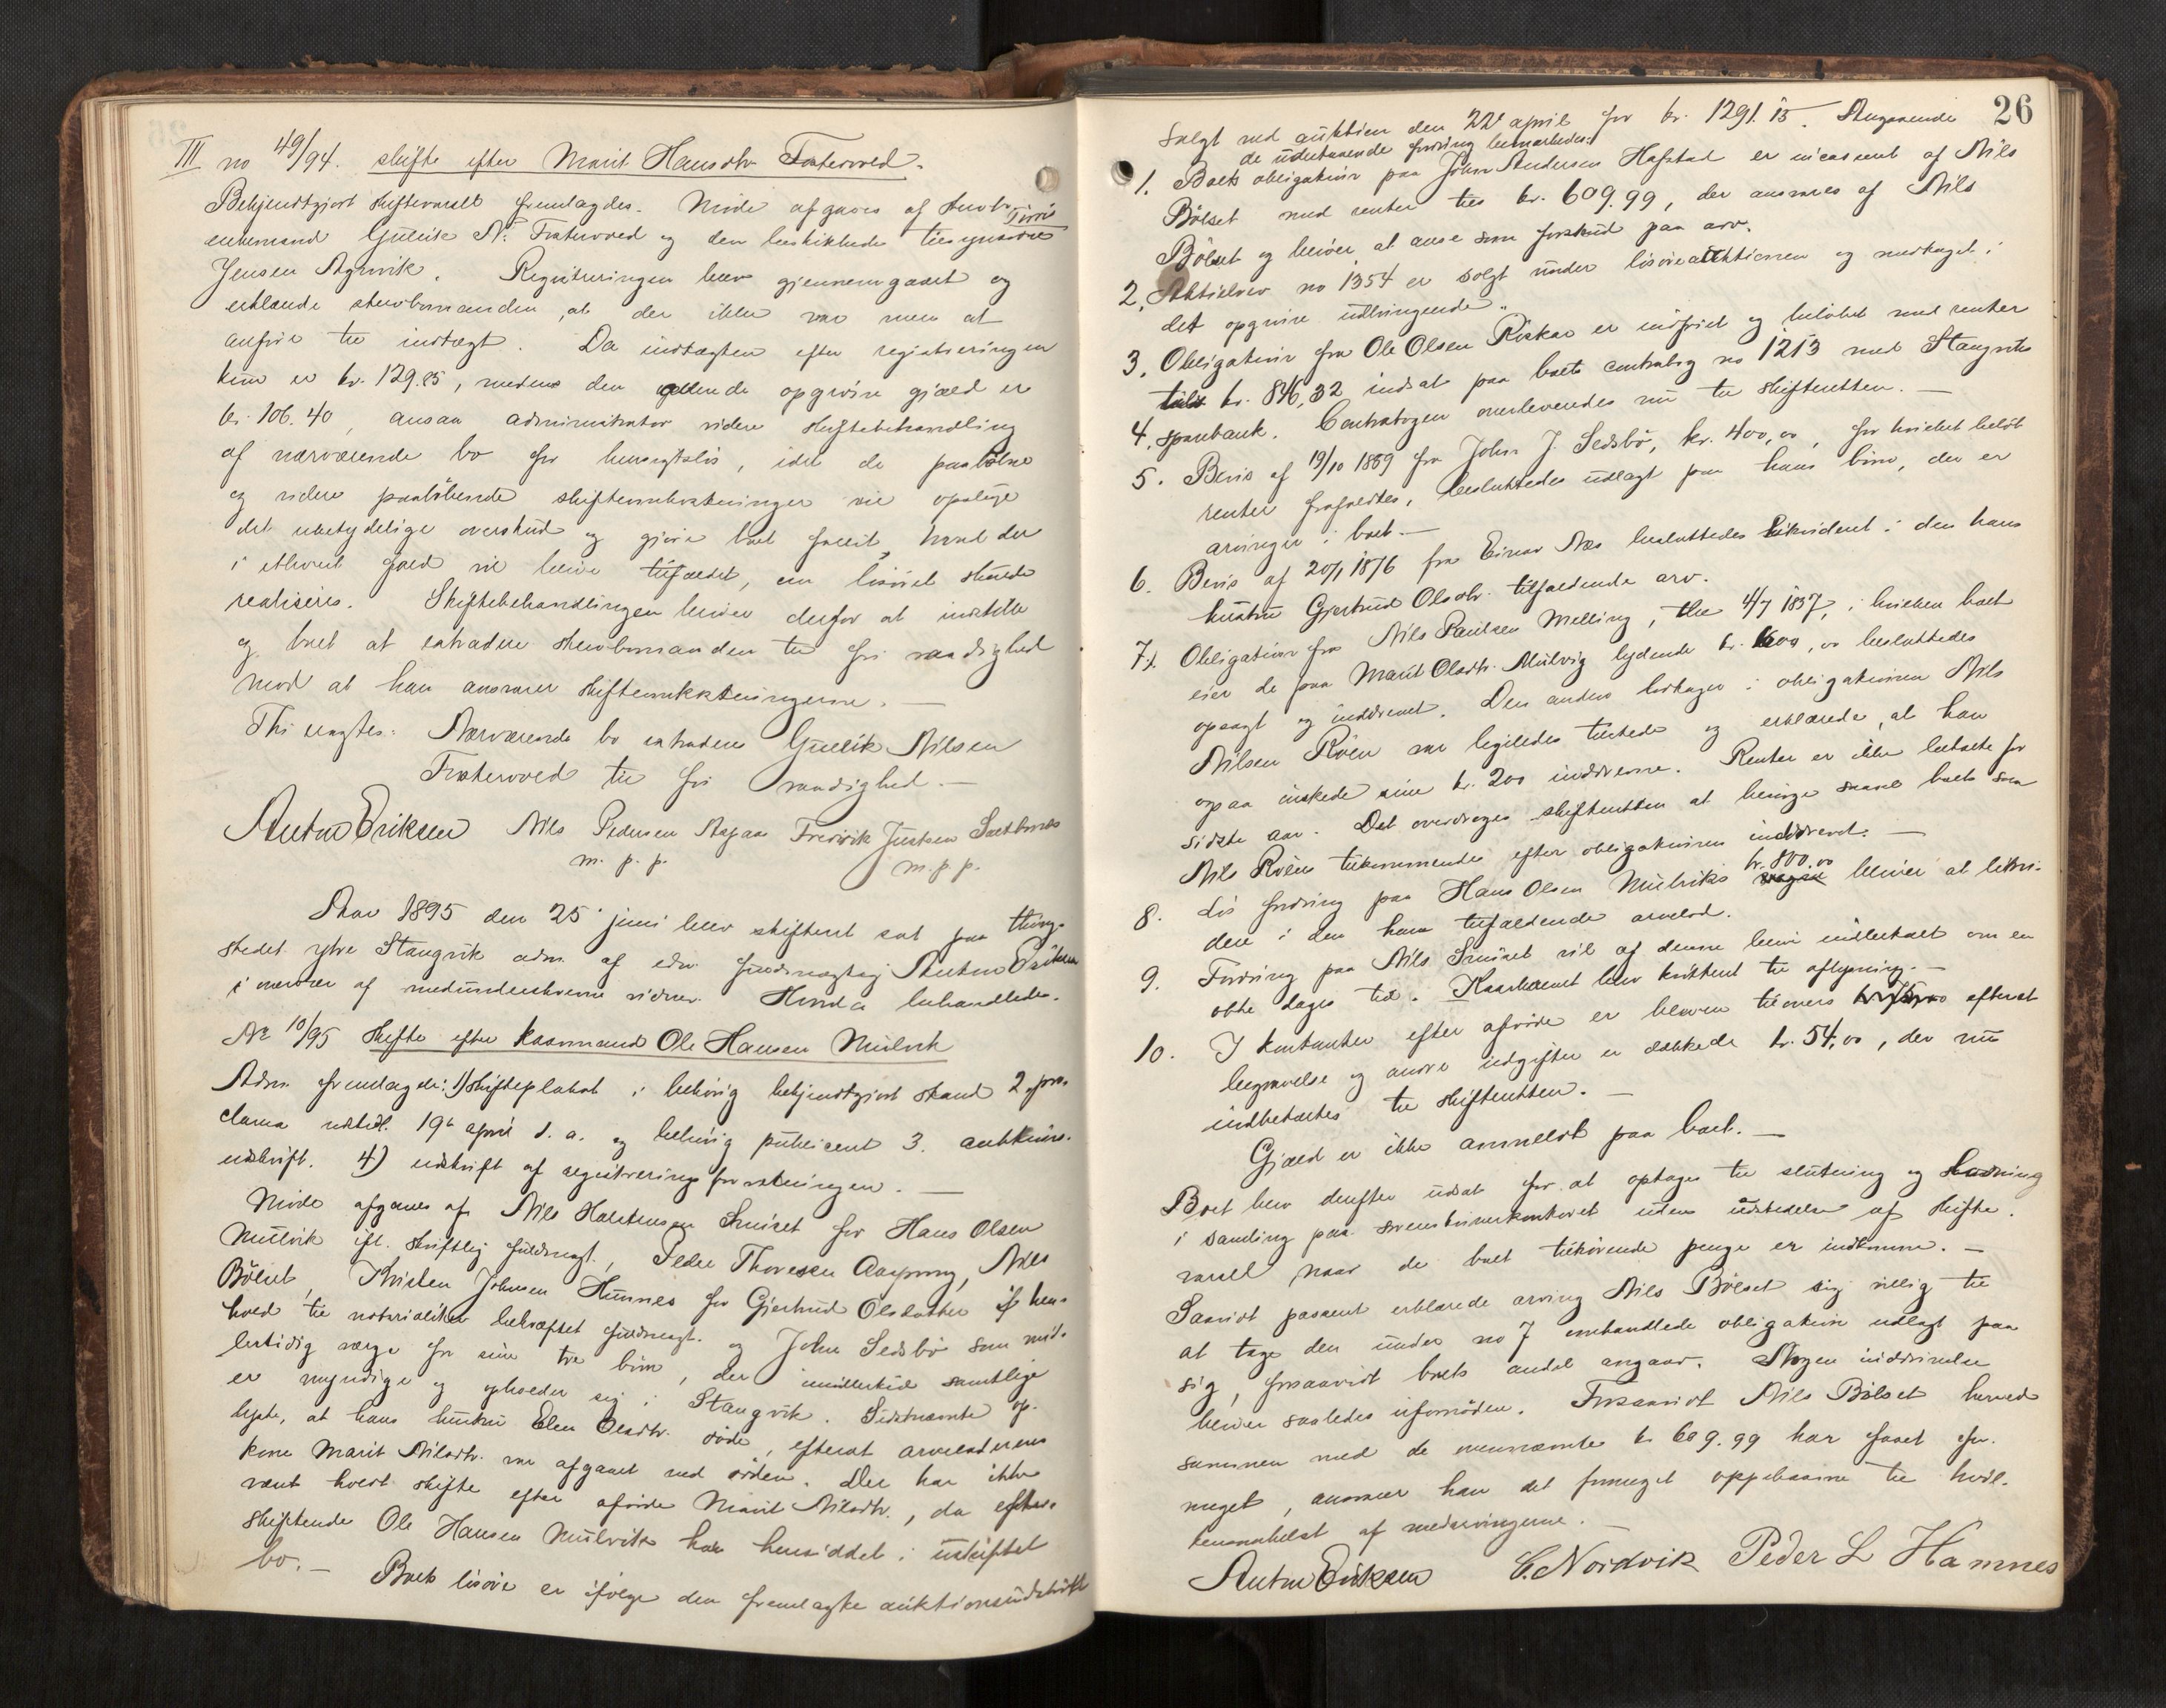 III no 49/94. skifte efter Marit Hansdtr Fæterwold.
Bekjendtgjort skiftevarsel fremlagdes. Møde afgaves af
enkemand Gullik N. og den beskikkede tilsynsværge Tørris
Jensen Aarvik. Registreringen blev gjennemgaaet og
erklærede stervbomanden, at der ikke var mere at
anføre til indtægt. Da indtægten efter registreringen
kun er kr. 129.85, medens den opgivne gjæld er
kr. 106.40, ansaa administrator videre skiftebehandling
af nærværende bo for hensigtsløs, idet de paaløbne
og videre paaløbende skifteomkostninger vil opsluge
det ubetydelige overskud og gjøre boet fallit, hvad der
i ethvert fald vil blive tilfældet, om løsøret skulde
realiseres. Skiftebehandlingen bliver derfor at indstille
og boet at extradere stervbomanden til fri raadighed
mod at han ansvarer skifteomkostningerne. —
Thi eragtes: Nærværende bo extraderes Gullik Nilsen
til fri raadighed. —
Anton Eriksen Nils Pedersen Aspaas Fredrik Justsen Sæterbø
m. p. p. m. p. p.
Aar 1895 den 25 juni blev skifteret sat paa thing-
stedet ytre Stangvik adm. af edsv. fuldmægtig Anton Eriksen
i nærvær af medunderskrevne vidner. Hvorda behandledes.
No 10/95 Skifte efter kaarmand Ole Hansen Mulvik
Adm. fremlagde: 1) Skifteplakat i behørig bekjendtgjort stand 2. pro-
clama udstedt 19de april d. a. og behørig publiceret 3. auktions-
udskrift. 4) udskrift af registreringsforretningen. —
Møde afgaves af Nils Halstensen Smiset for Hans Olsen
Mulvik ifl. skriftlig fuldmagt, Peder Thoresen Aasprong, Nils
Bølset, Kristen Johnsen Humnes for Gjertrud Olsdatter i hen-
hold til notarialiter bekræftet fuldmagt og John Sedsbø som mid-
lertidig værge for sine tre børn, der imidlertid samtlige
er myndige og opholder sig i Stangvik. Sidstnævnte op-
lyste, at hans hustru Elen Olsdtr. døde, efterat arveladerens
kone Marit Nilsdtr. var afgaaet ved døden. Der har ikke
været holdt skifte efter afdøde Marit Nilsdtr., da efter-
skiftende Ole Hansen Mulvik har hensiddet i uskiftet
bo. — Boets løsøre er ifølge den fremlagte auktionsudskrift
26
solgt ved auktion den 22de april for kr. 1291.15. Angaaende
de udestaaende fordring bemærkedes:
1. Boets obligation paa John Andersen Hafstad er incasseret af Nils
Bølset med renter til kr. 609.99, der ansvares af Nils
Bølset og bliver at anse som forskud paa arv.
2. Aktiebrev no 1354 er solgt under løsøreauktionen og medtaget i
det opgivne udbringende.
3. Obligation fra Ole Olsen Riskar er indfriet og beløbet med renter
kr. 846,32 indsat paa boets contrabog no 1213 med Stangviks
4. sparebank. Contrabogen overleveredes nu til skifteretten. —
5. Bevis af 19/10 1889 fra John J. Sedsbø, kr. 400,00, for hvilket beløb
renter frafaldtes, besluttedes udlagt paa hans børn, der er
arvinger i boet. —
6. Bevis af 20/1 1876 fra Einar Næs besluttedes likvideret i den hans
hustru Gjertrud Olsdtr. tilfaldende arv.
7. Obligation fra Nils Paulsen Melling, thl. 4/7 1837, i hvilken boet
eier de paa Marit Olsdtr. Mulvig lydende kr. 600,00 besluttedes
opsagt og inddrevet. Den anden lodtager i obligationen Nils
Nilsen Røen var ligeledes tilstede og erklærede, at han
ogsaa ønskede sine kr. 200 inddrevne. Renter er ikke betalte for
sidste aar. Det overdroges skifteretten at besørge saavel boets som
Nils Røens tilkommende efter obligationen inddrevet. —
kr. 800.00
8. Løs fordring paa Hans Olsen Mulviks bliver at likvi-
dere i den ham tilfaldende arvelod.
9. Fordring paa Nils Smiset vil af denne blive indbetalt om en
otte dages tid. Kaarbrevet blev kvitteret til aflysning. —
10. I kontanter efter afdøde er bleven tilovers efterat
begravelse og andre udgifter er dækkede kr. 54,00, der nu
indbetaltes til skifteretten. —
Gjæld er ikke anmeldt paa boet. —
Boet blev derefter udsat for at optages til slutning og
i samling paa sorenskriverkontoret uden udstedelse af skifte-
varsel naar de boet tilhørende penge er indkomne. —
Saavidt passeret erklærede arving Nils Bølset sig villig til
at tage den under no 7 omhandlede obligation udlagt paa
sig, forsaavidt boets andel angaar. Nogen inddrivelse
bliver saaledes ufornøden. Forsaavidt Nils Bølset herved
sammen med de ovennævnte kr 609.99 har faaet for-
meget, ansvarer han det formeget oppebaarne til hvil-
kensomhelst af medarvingerne. —
Anton Eriksen C. Nordvik Peder L Hamnes